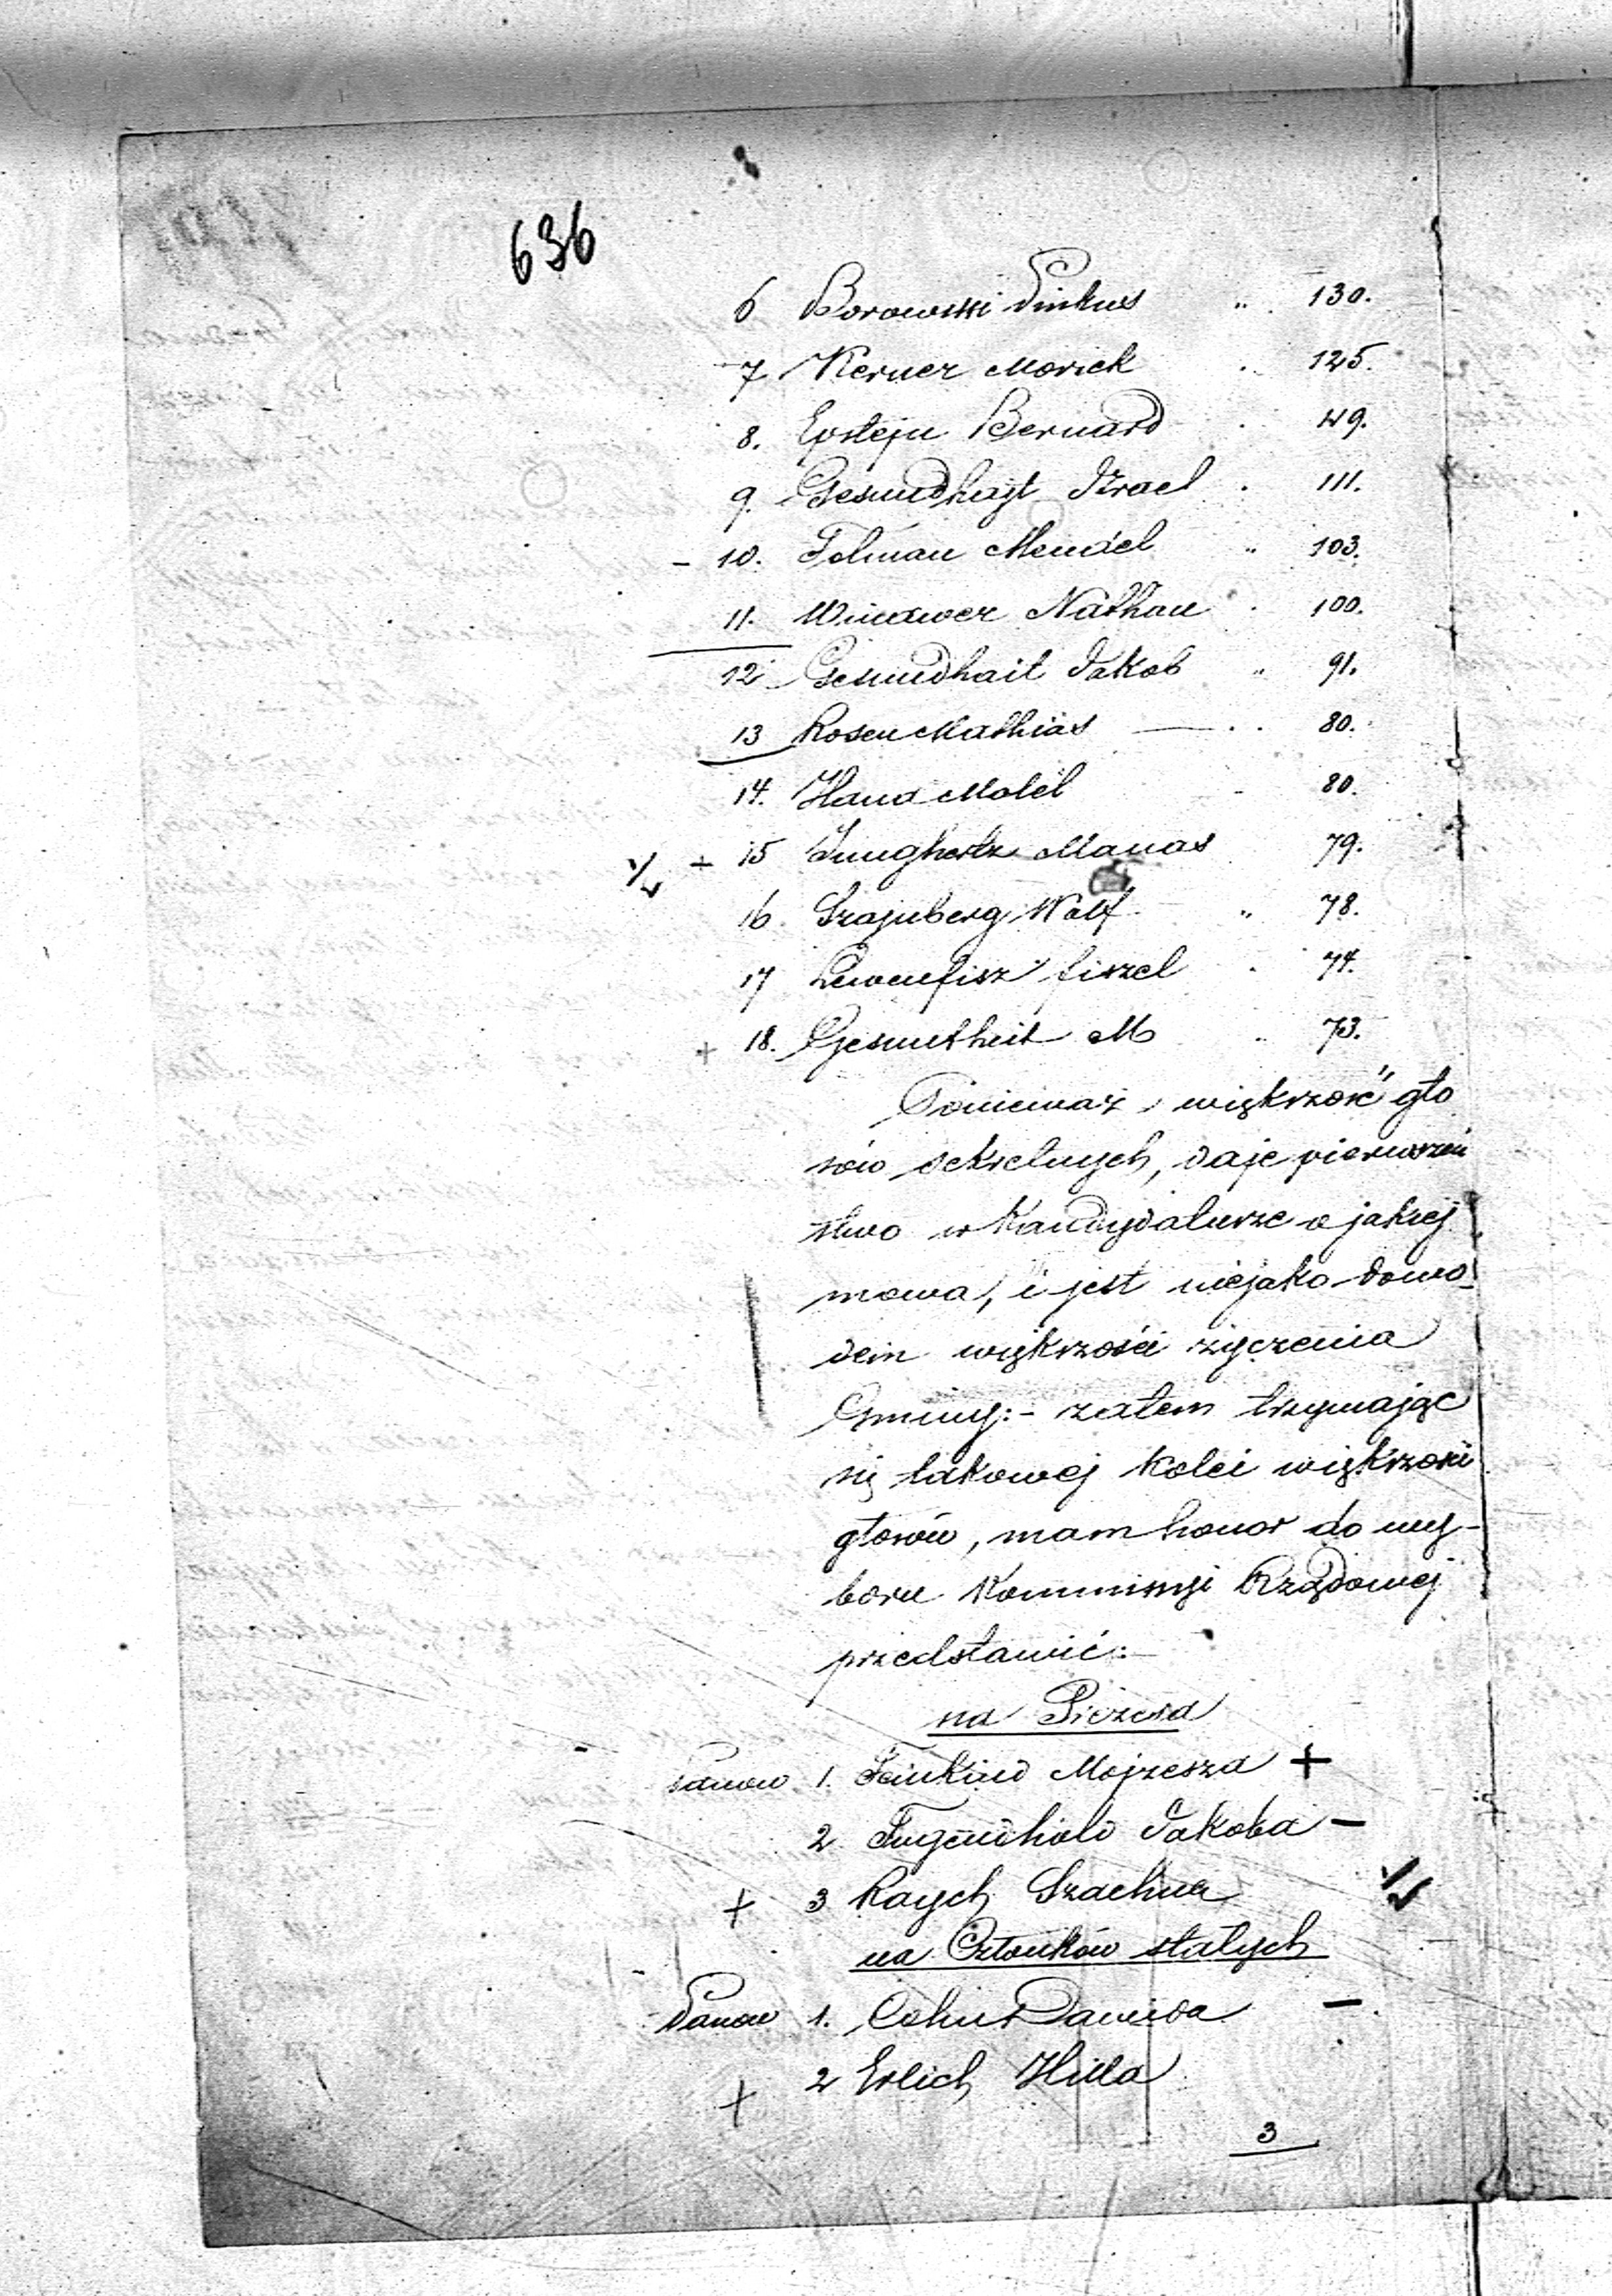 636
6 Borowski Pinkus " 130.
7 Kerner Moriek . 125.
8. Epstejn Bernard . 49.
9. Gesundhajt Izrael . 111.
- 10. Tolman Mendel " 103.
11. Winawer Nathan . 100.
12 Gesundhait Jakob " 91.
13 Rosen Mathias — . . 80.
14. Hand Motel - 80.
+ 15 Junghertz Manas 79.
16 Szajnberg Wolf " 78.
17 Lewenfisz fiszel . 74.
+ 18. Gesuntheit M " 73.
Poniewaz większość gło
sów sekretnych, daje pierwszeń
stwo w Kandydaturze o jakiej
mowa, i jest niejako dowo-
dem większości życzenia
Gminy:- zatem trzymając
się takowej kolei większości
głosów, mam honor do wy-
boru Kommissyi Rządowej
przedstawić:-
na Prezesa
Panow 1. Feinkind Mojzesza +
2. Tugendhold Jakoba -
+ 3 Raych Szachna
na Członków stałych
Panow 1. Cohn Dawida -
+ 2 Erlich Hilla
3